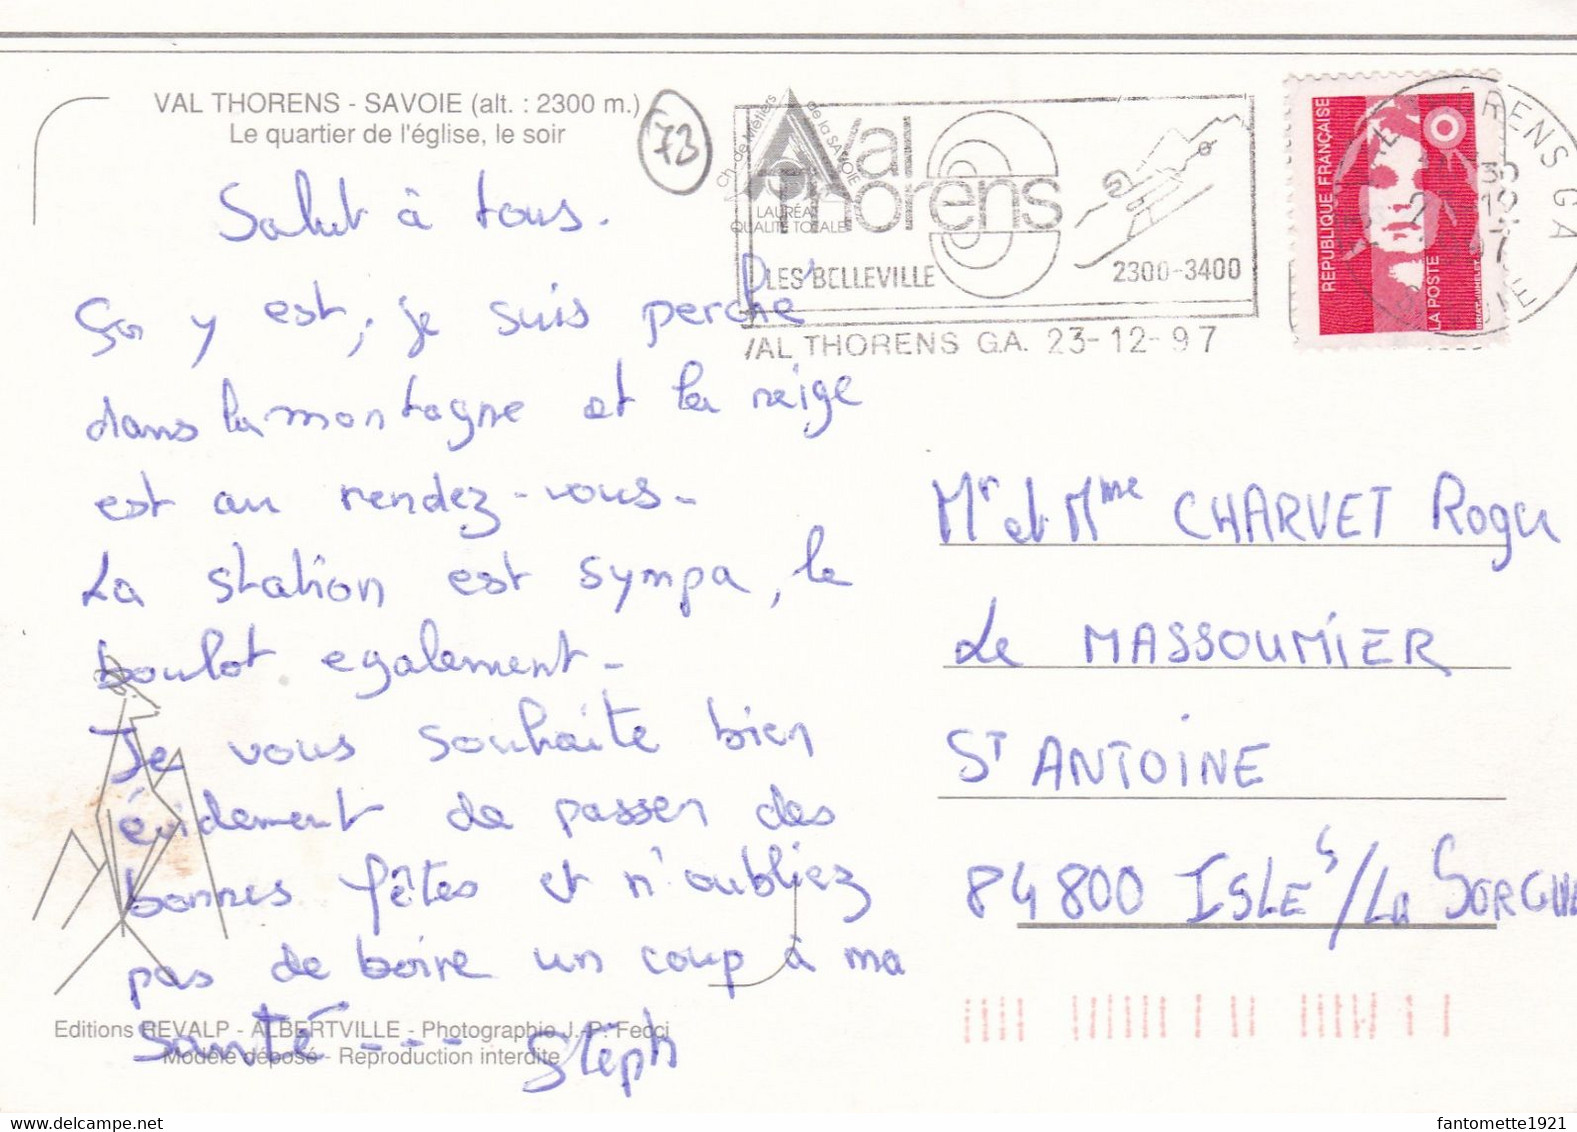 VAL THORENS - SAVOIE (alt. : 2300 m.)
Le quartier de l'église, le soir
73
Ch. de Métiers de la SAVOIE
LAURÉAT
QUALITÉ TOTALE
Val
Thorens
LES BELLEVILLE
2300-3400
VAL THORENS G.A. 23-12-97
RÉPUBLIQUE FRANÇAISE
LA POSTE
Salut à tous.
Ça y est, je suis perché
dans la montagne et la neige
est au rendez-vous-
La station est sympa, le
boulot egalement-
Je vous souhaite bien
évidement de passer des
bonnes fêtes et n'oubliez
pas de boire un coup à ma
Santé --- Stéph
Mr et Mme CHARVET Roger
Le MASSOUMIER
ST ANTOINE
84800 ISLE s/La SORGUE
Editions REVALP - ALBERTVILLE - Photographie J.-P. Fecci
Modèle déposé - Reproduction interdite
fantomette1921